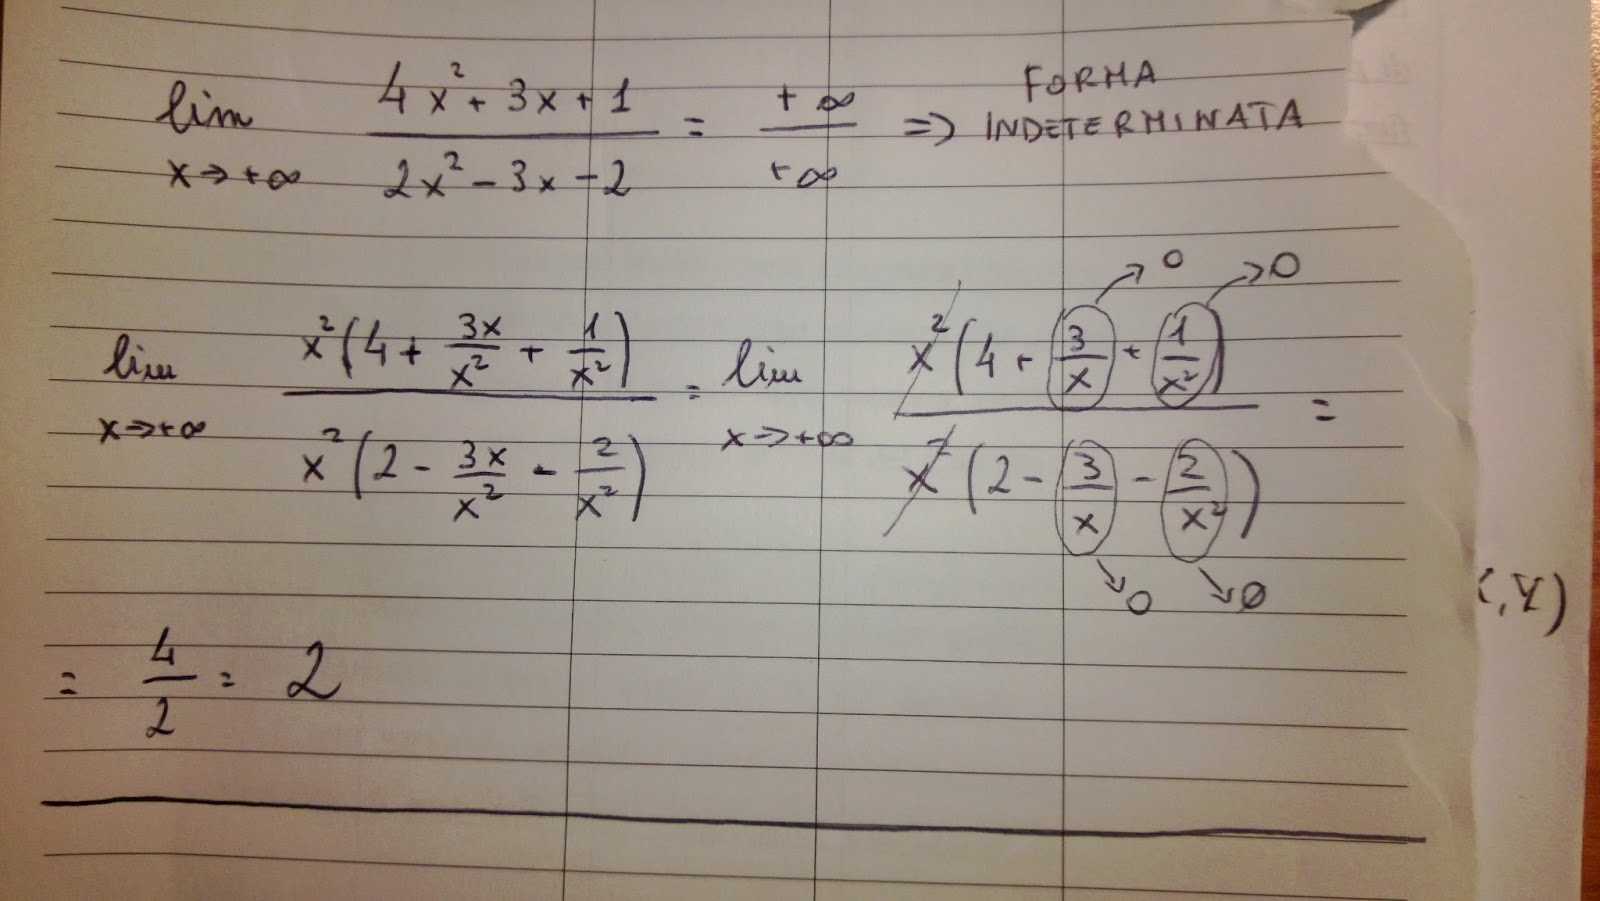 lim x→+∞ (4x² + 3x + 1)/(2x² − 3x − 2) = +∞/+∞ ⇒ FORMA INDETERMINATA
lim x→+∞ x²(4 + 3x/x² + 1/x²)/x²(2 − 3x/x² − 2/x²) = lim x→+∞ x²(4 + 3/x + 1/x²)/x²(2 − 3/x − 2/x²) =
→0 →0
→0 →0
= 4/2 = 2